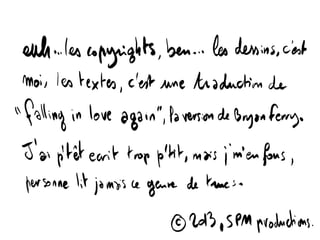 euh...les copyrights, ben... les dessins, c'est
moi, les textes, c'est une traduction de
"falling in love again", la version de Bryan Ferry.
J'ai p'têt ecrit trop p'tit, mais j'm'en fous,
personne lit jamais ce genre de trucs.
© 2013, SPM productions.